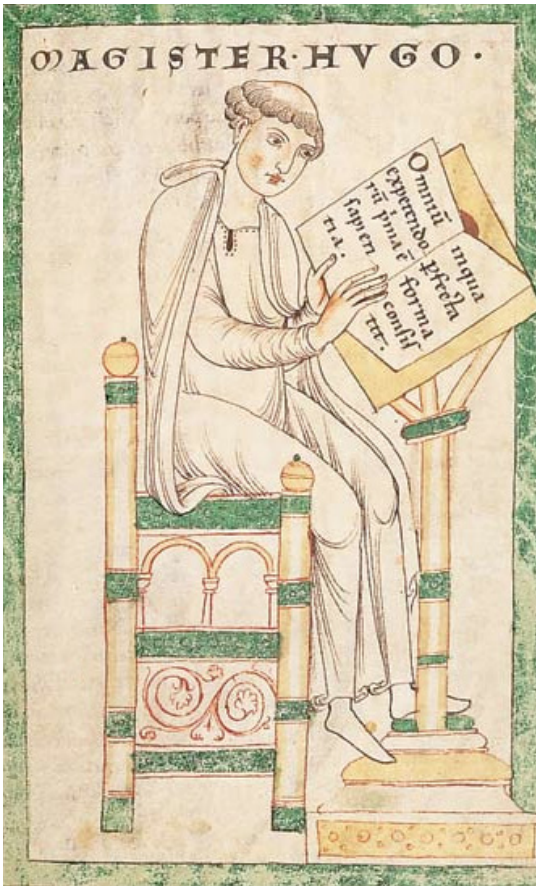 MAGISTER·HVGO·
Omniū
expetendo
rū p̾ma ē
sapien
tia.
inqua
ꝑfecta
forma
consis
tit.